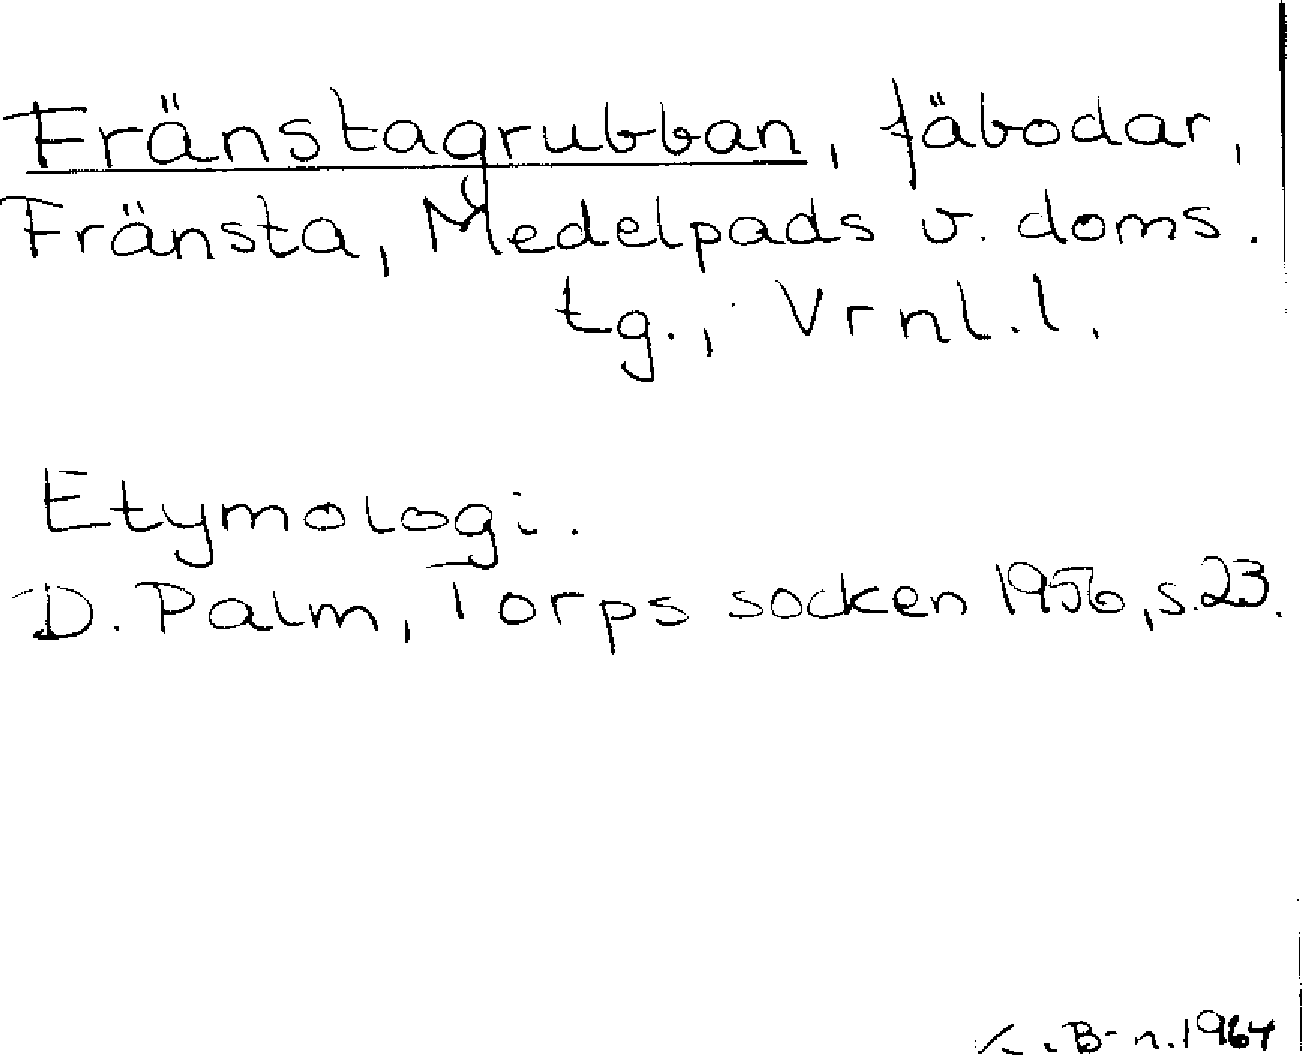 Fränstagrubban, fäbodar,
Fränsta, Medelpads v. doms.
tg., Vrnl. l.
Etymologi.
D. Palm, Torps socken 1956, s. 23.
B-n. 1964